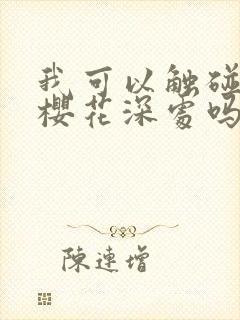 我可以触碰
樱花深处吗
陈连增